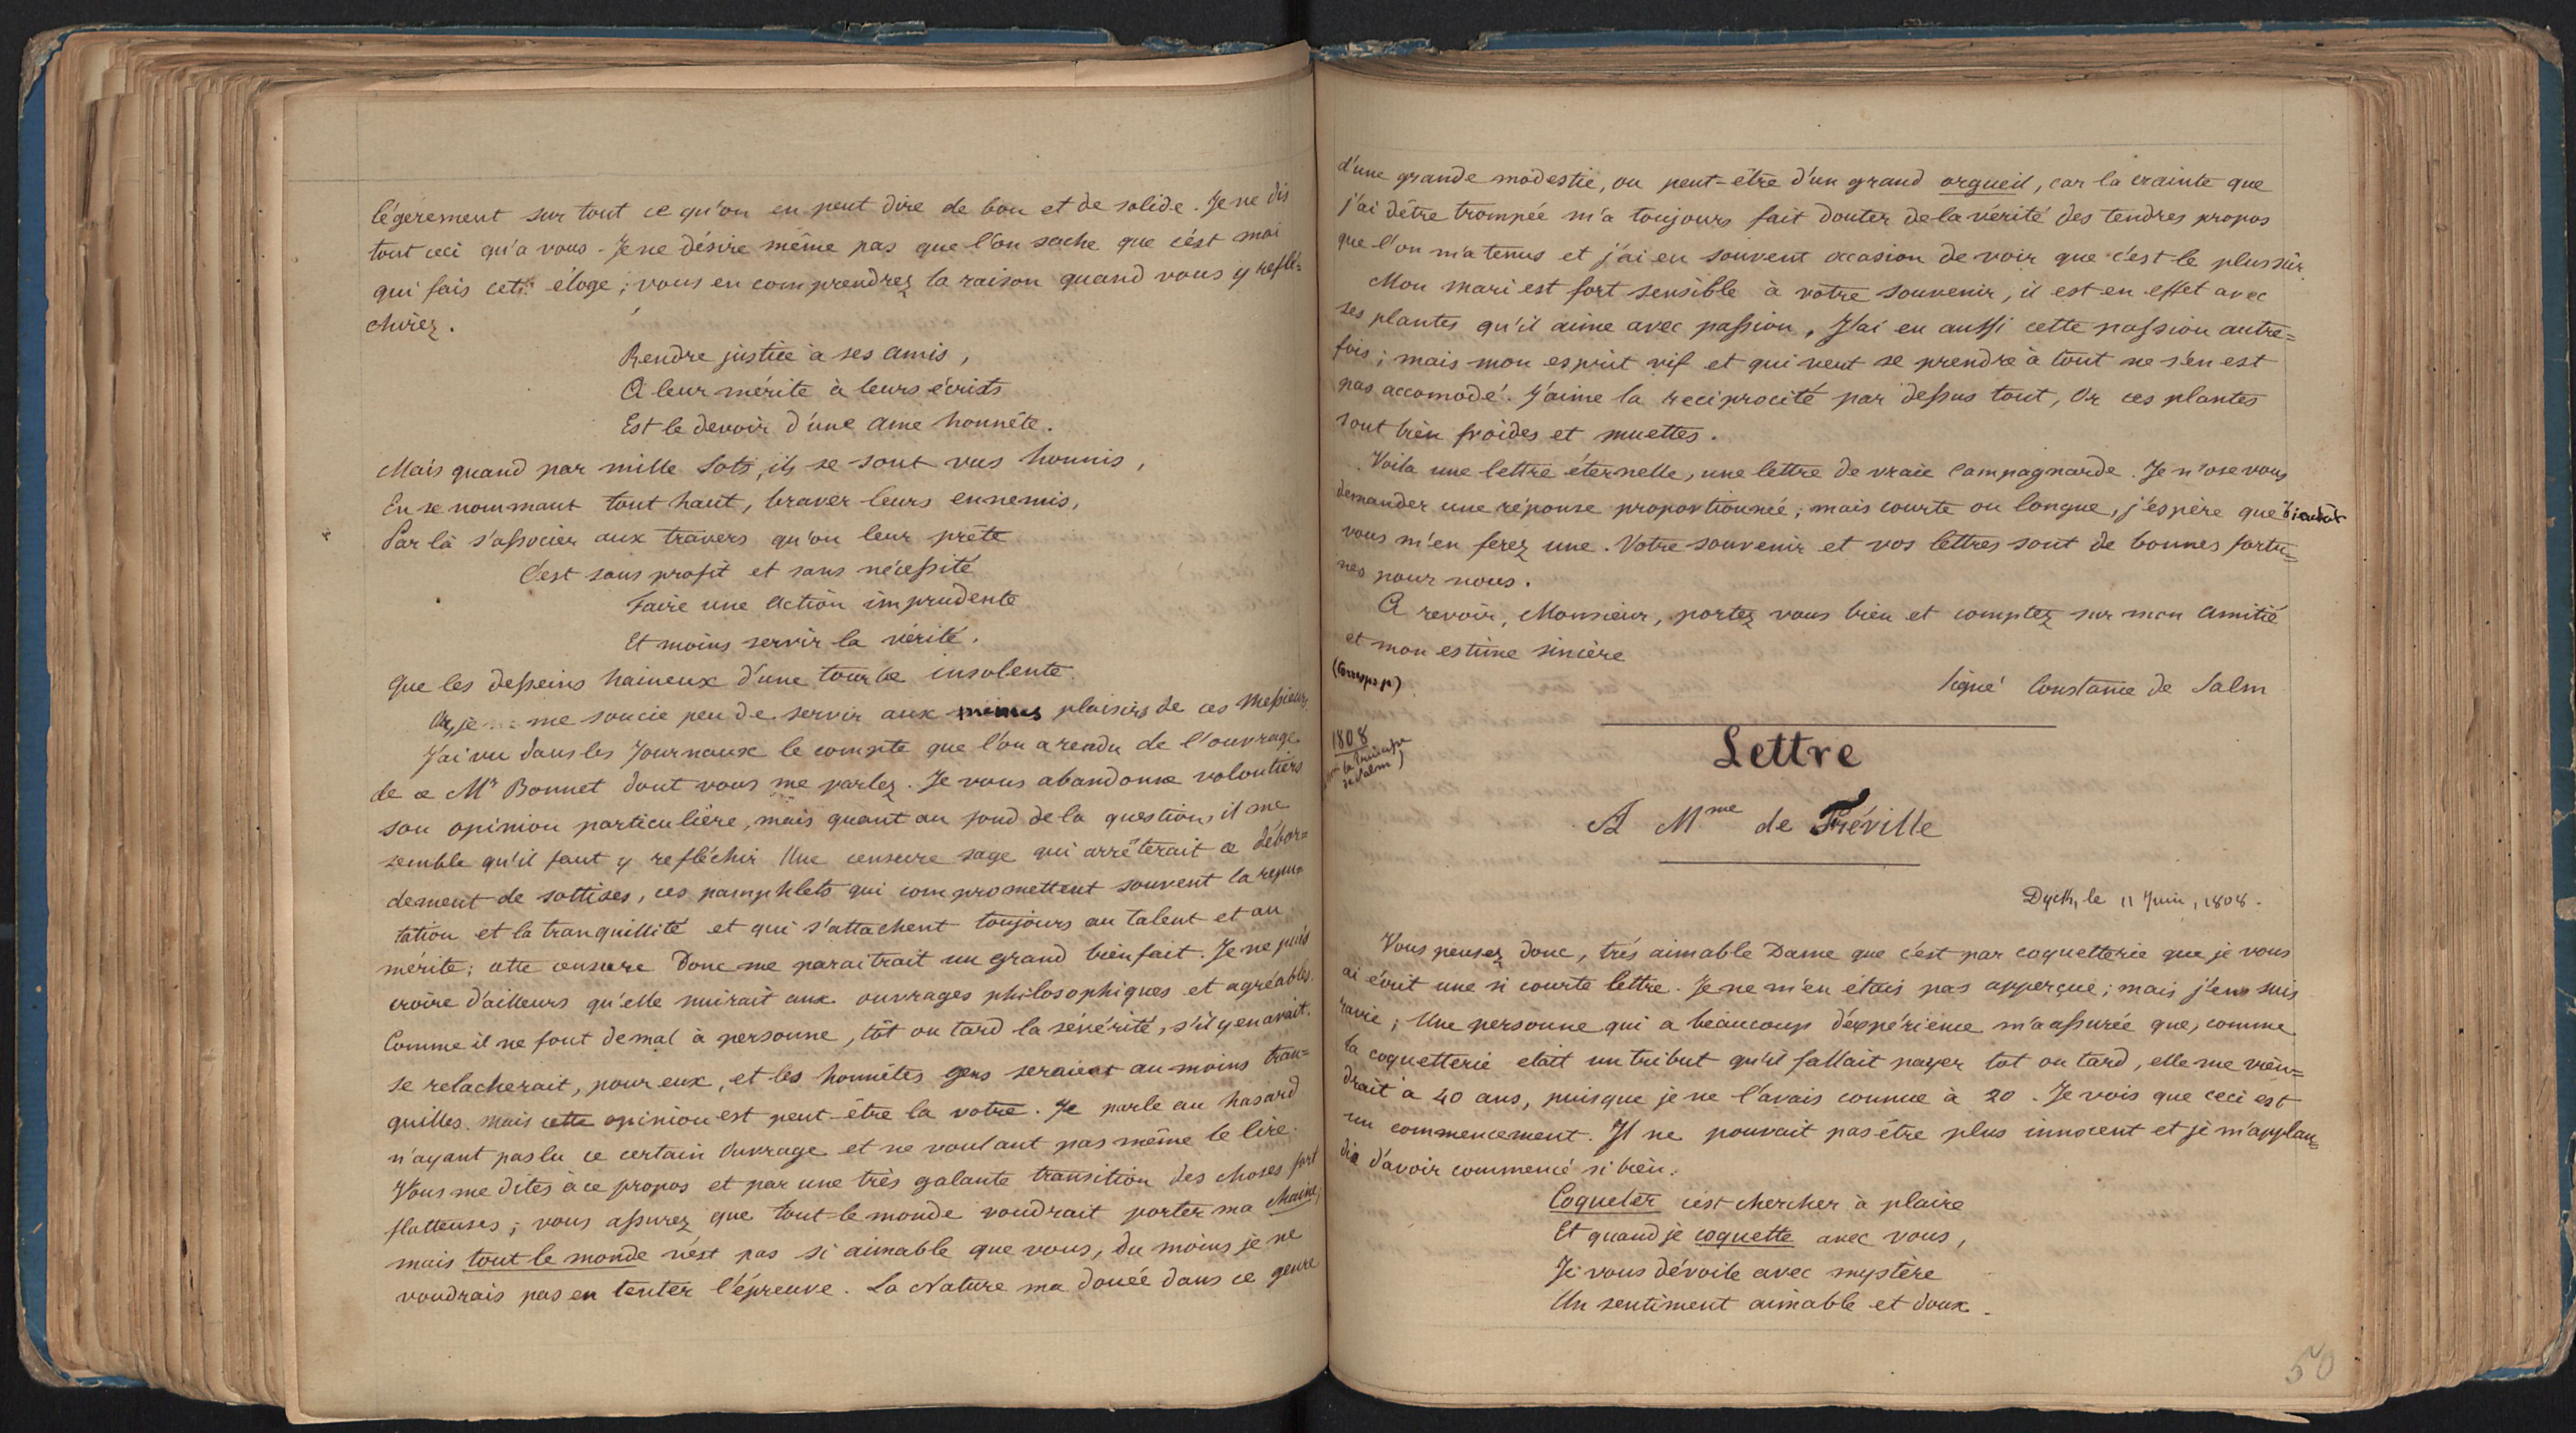 légèrement sur tout ce qu'on en peut dire de bon et de solide. Je ne dis
tout ceci qu'a vous - Je ne désire même pas que l'on sache que c'est moi
qui fais cet éloge ; vous en comprendrez la raison quand vous y reflé=
chirez.
Rendre justice à ses amis,
A leur mérite à leurs écrits
Est le devoir d'une ame honnête.
Mais quand par mille Sots, ils se sont vus honnis,
En se nommant tout haut, braver leurs ennemis,
Par là s'associer aux travers qu'on leur prête
C'est sans profit et sans nécessité
Faire une action imprudente
Et moins servir la vérité.
Que les desseins haineux d'une tourbe insolente.
Or, je me soucie peu de servir aux plaisirs de ces Messieurs.
J'ai vu dans les Journaux le compte que l'on a rendu de l'ouvrage
de ce Mr Bonnet dont vous me parlez. Je vous abandonne volontiers
son opinion particulière, mais quant au fond de la question, il me
semble qu'il faut y refléchir Une censure sage qui arrêterait ce débor=
dement de sottises, ces pamphlets qui compromettent souvent la repu=
tation et la tranquillité et qui s'attachent toujours au talent et au
mérite ; cette censure donc me paraitrait un grand bienfait. Je ne puis
croire d'ailleurs qu'elle nuirait aux ouvrages philosophiques et agréables.
Comme il ne font de mal à personne, tôt ou tard la sévérité, s'il y en avait.
se relacherait, pour eux, et les honnêtes gens seraient au moins tran=
quilles. Mais cette opinion est peut-être la votre. Je parle au hasard
n'ayant pas lu ce certain Ouvrage et ne voulant pas même le lire.
Vous me dites à ce propos et par une très galante transition des choses fort
flatteuses ; vous assurez que tout le monde voudrait porter ma chaine,
mais tout le monde n'est pas si aimable que vous, du moins je ne
voudrais pas en tenter l'épreuve. La Nature ma douée dans ce genre
d'une grande modestie, ou peut-être d'un grand orgueil, car la crainte que
j'ai d'être trompée m'a toujours fait douter de la vérité des tendres propos
que l'on m'a tenus et j'ai eu souvent occasion de voir que c'est le plus sûr.
Mon mari est fort sensible à votre souvenir, il est en effet avec
ses plantes qu'il aime avec passion, J'ai eu aussi cette passion autre=
fois ; mais mon esprit vif et qui veut se prendre à tout ne s'en est
pas accomodé. J'aime la reciprocité par dessus tout, Or ces plantes
sont bien froides et muettes.
Voila une lettre éternelle, une lettre de vraie Campagnarde. Je n'ose vous
demander une réponse proportionnée ; mais courte ou longue, j'espère que bientôt
vous m'en ferez une. Votre souvenir et vos lettres sont de bonnes fortu=
nes pour nous.
A revoir, Monsieur, portez vous bien et comptez sur mon amitié
et mon estime sincère
Signé Constance de Salm
1808
la Princesse
de Salm)
Lettre
A Mme de Fréville
Dyck, le 11 Juin, 1808.
Vous pensez donc, très aimable Dame que c'est par coquetterie que je vous
ai écrit une si courte lettre. Je ne m'en étais pas apperçue ; mais j'en suis
ravie ; Une personne qui a beaucoup d'expérience m'a assurée que, comme
la coquetterie etait un tribut qu'il fallait payer tot ou tard, elle me vien=
drait à 40 ans, puisque je ne l'avais connue à 20. Je vois que ceci est
un commencement. Il ne pouvait pas être plus innocent et je m'applau=
dis d'avoir commencé si bien.
Coqueter c'est chercher à plaire
Et quand je coquette avec vous,
Je vous dévoile avec mystère
Un sentiment aimable et doux.
50